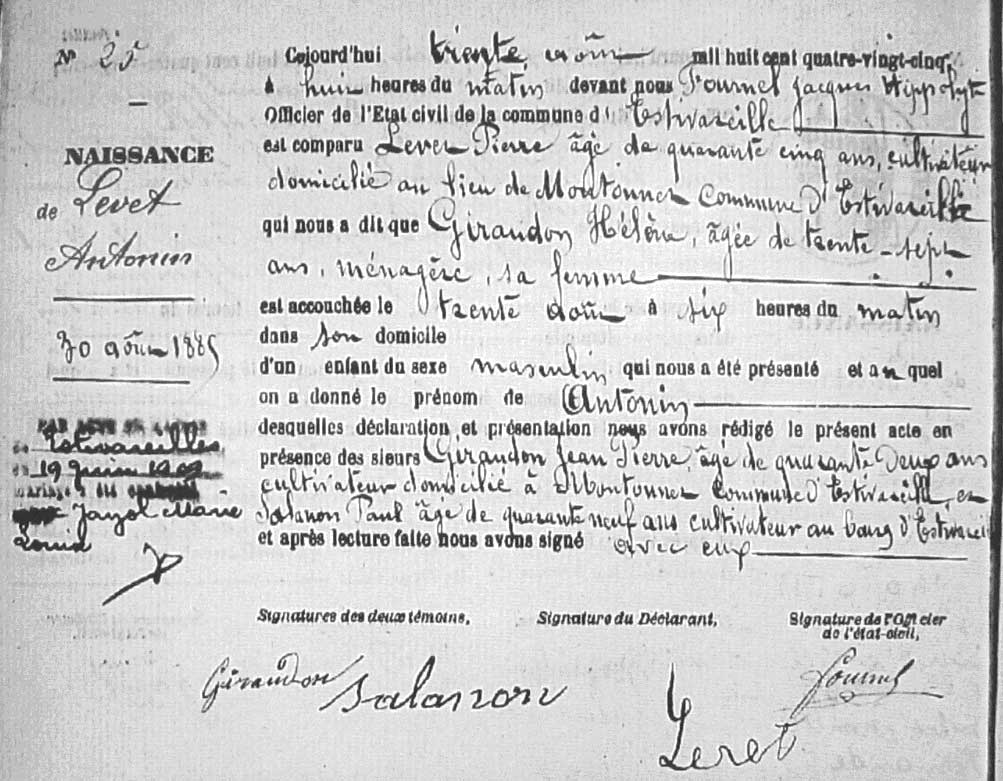 N° 25
NAISSANCE
de Levet
Antonin
30 août 1885
Estivareilles
19 juin 1909
mariage a été
Jayol Marie
Louise
Cejourd'hui trente août mil huit cent quatre-vingt-cinq,
à huit heures du matin devant nous Fournel Jacques Hippolyte
Officier de l'Etat civil de la commune d'Estivareille
est comparu Levet Pierre âgé de quarante cinq ans, cultivateur
domicilié au lieu de Montonnet commune d'Estivareille
qui nous a dit que Giraudon Hélène, âgée de trente-sept
ans, ménagère, sa femme
est accouchée le trente août à six heures du matin
dans son domicile
d'un enfant du sexe masculin qui nous a été présenté et au quel
on a donné le prénom de Antonin
desquelles déclaration et présentation nous avons rédigé le présent acte en
présence des sieurs Giraudon Jean Pierre, âgé de quarante deux ans
cultivateur domicilié à Montonnet commune d'Estivareille et
Salanon Paul âgé de quarante neuf ans cultivateur au bourg d'Estivareil
et après lecture faite nous avons signé avec eux
Signatures des deux témoins,
Signature du Déclarant,
Signature de l'Officier
de l'état-civil,
Giraudon
Salanon
Levet
Fournel